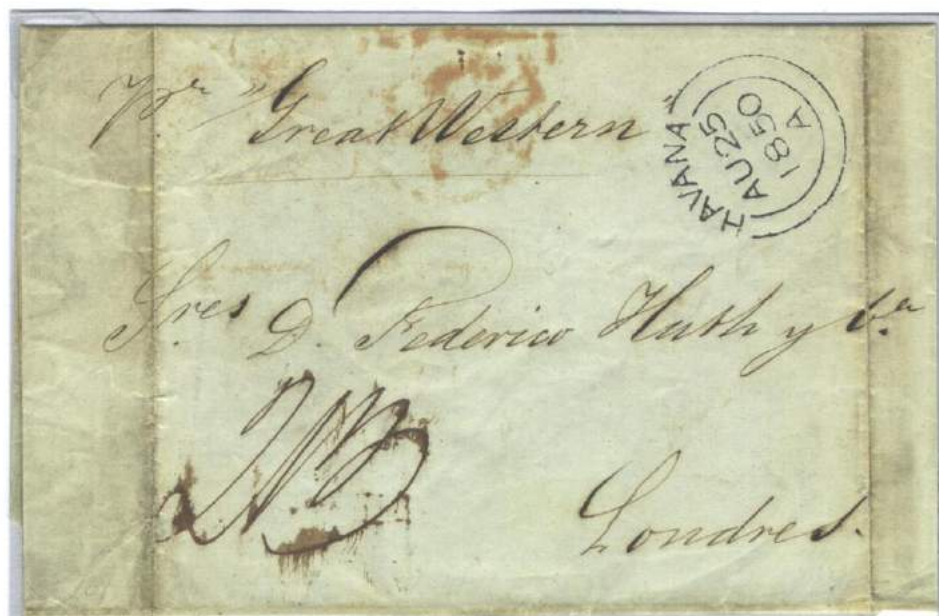 Pr "Great Western"
HAVANA
AU 25
1850
A
Sres D. Federico Huth y Ca
Londres.